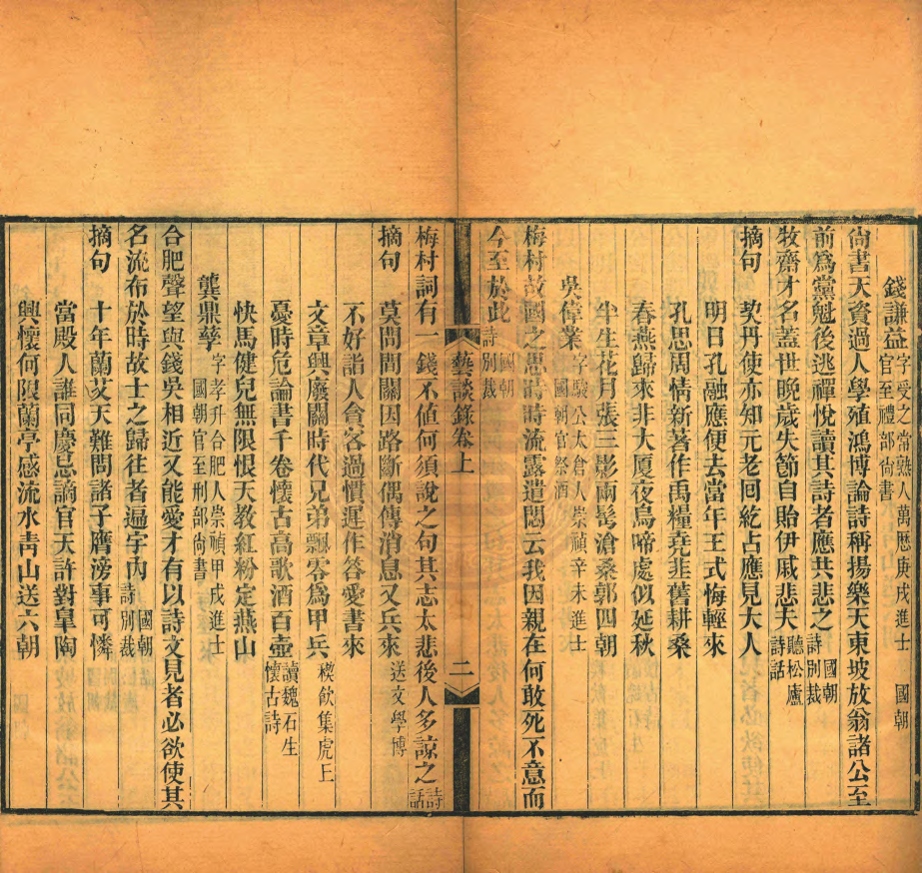 錢謙益字受之常熟人萬厯庚戌進士國朝官至禮部尚書
尙書天資過人學殖鴻博論詩稱揚樂天東坡放翁諸公至
前爲黨魁後逃禪悅讀其詩者應共悲之國朝詩別裁
牧齋才名蓋世晚歲失節自貽伊戚悲夫聽松廬詩話
摘句 契丹使亦知元老回紇占應見大人
明日孔融應便去當年王式悔輕來
孔思周情新著作禹糧堯韭舊耕桑
春燕歸來非大厦夜烏啼處似延秋
半生花月張三影兩鬢滄桑郭四朝
吳偉業字駿公太倉人崇禎辛未進士國朝官祭酒
梅村故國之思時時流露遣悶云我因親在何敢死不意而
今至於此國朝詩別裁
藝談錄卷上 二
梅村詞有一錢不值何須說之句其志太悲後人多諒之詩話
摘句 莫問間關因路斷偶傳消息又兵來送文學博
不好詣人貪客過慣遲作答愛書來
文章興廢關時代兄弟飄零爲甲兵楔飲集虎丘
憂時危論書千卷懷古高歌酒百壺讀魏石生懷古詩
快馬健兒無限恨天教紅粉定燕山
龔鼎孳字孝升合肥人崇禎甲戌進士國朝官至刑部尚書
合肥聲望與錢吳相近又能愛才有以詩文見者必欲使其
名流布於時故士之歸往者遍宇內國朝詩別裁
摘句 十年蘭艾天難問諸子膺滂事可憐
當殿人誰同慶忌謫官天許對皐陶
興懷何限蘭亭感流水靑山送六朝